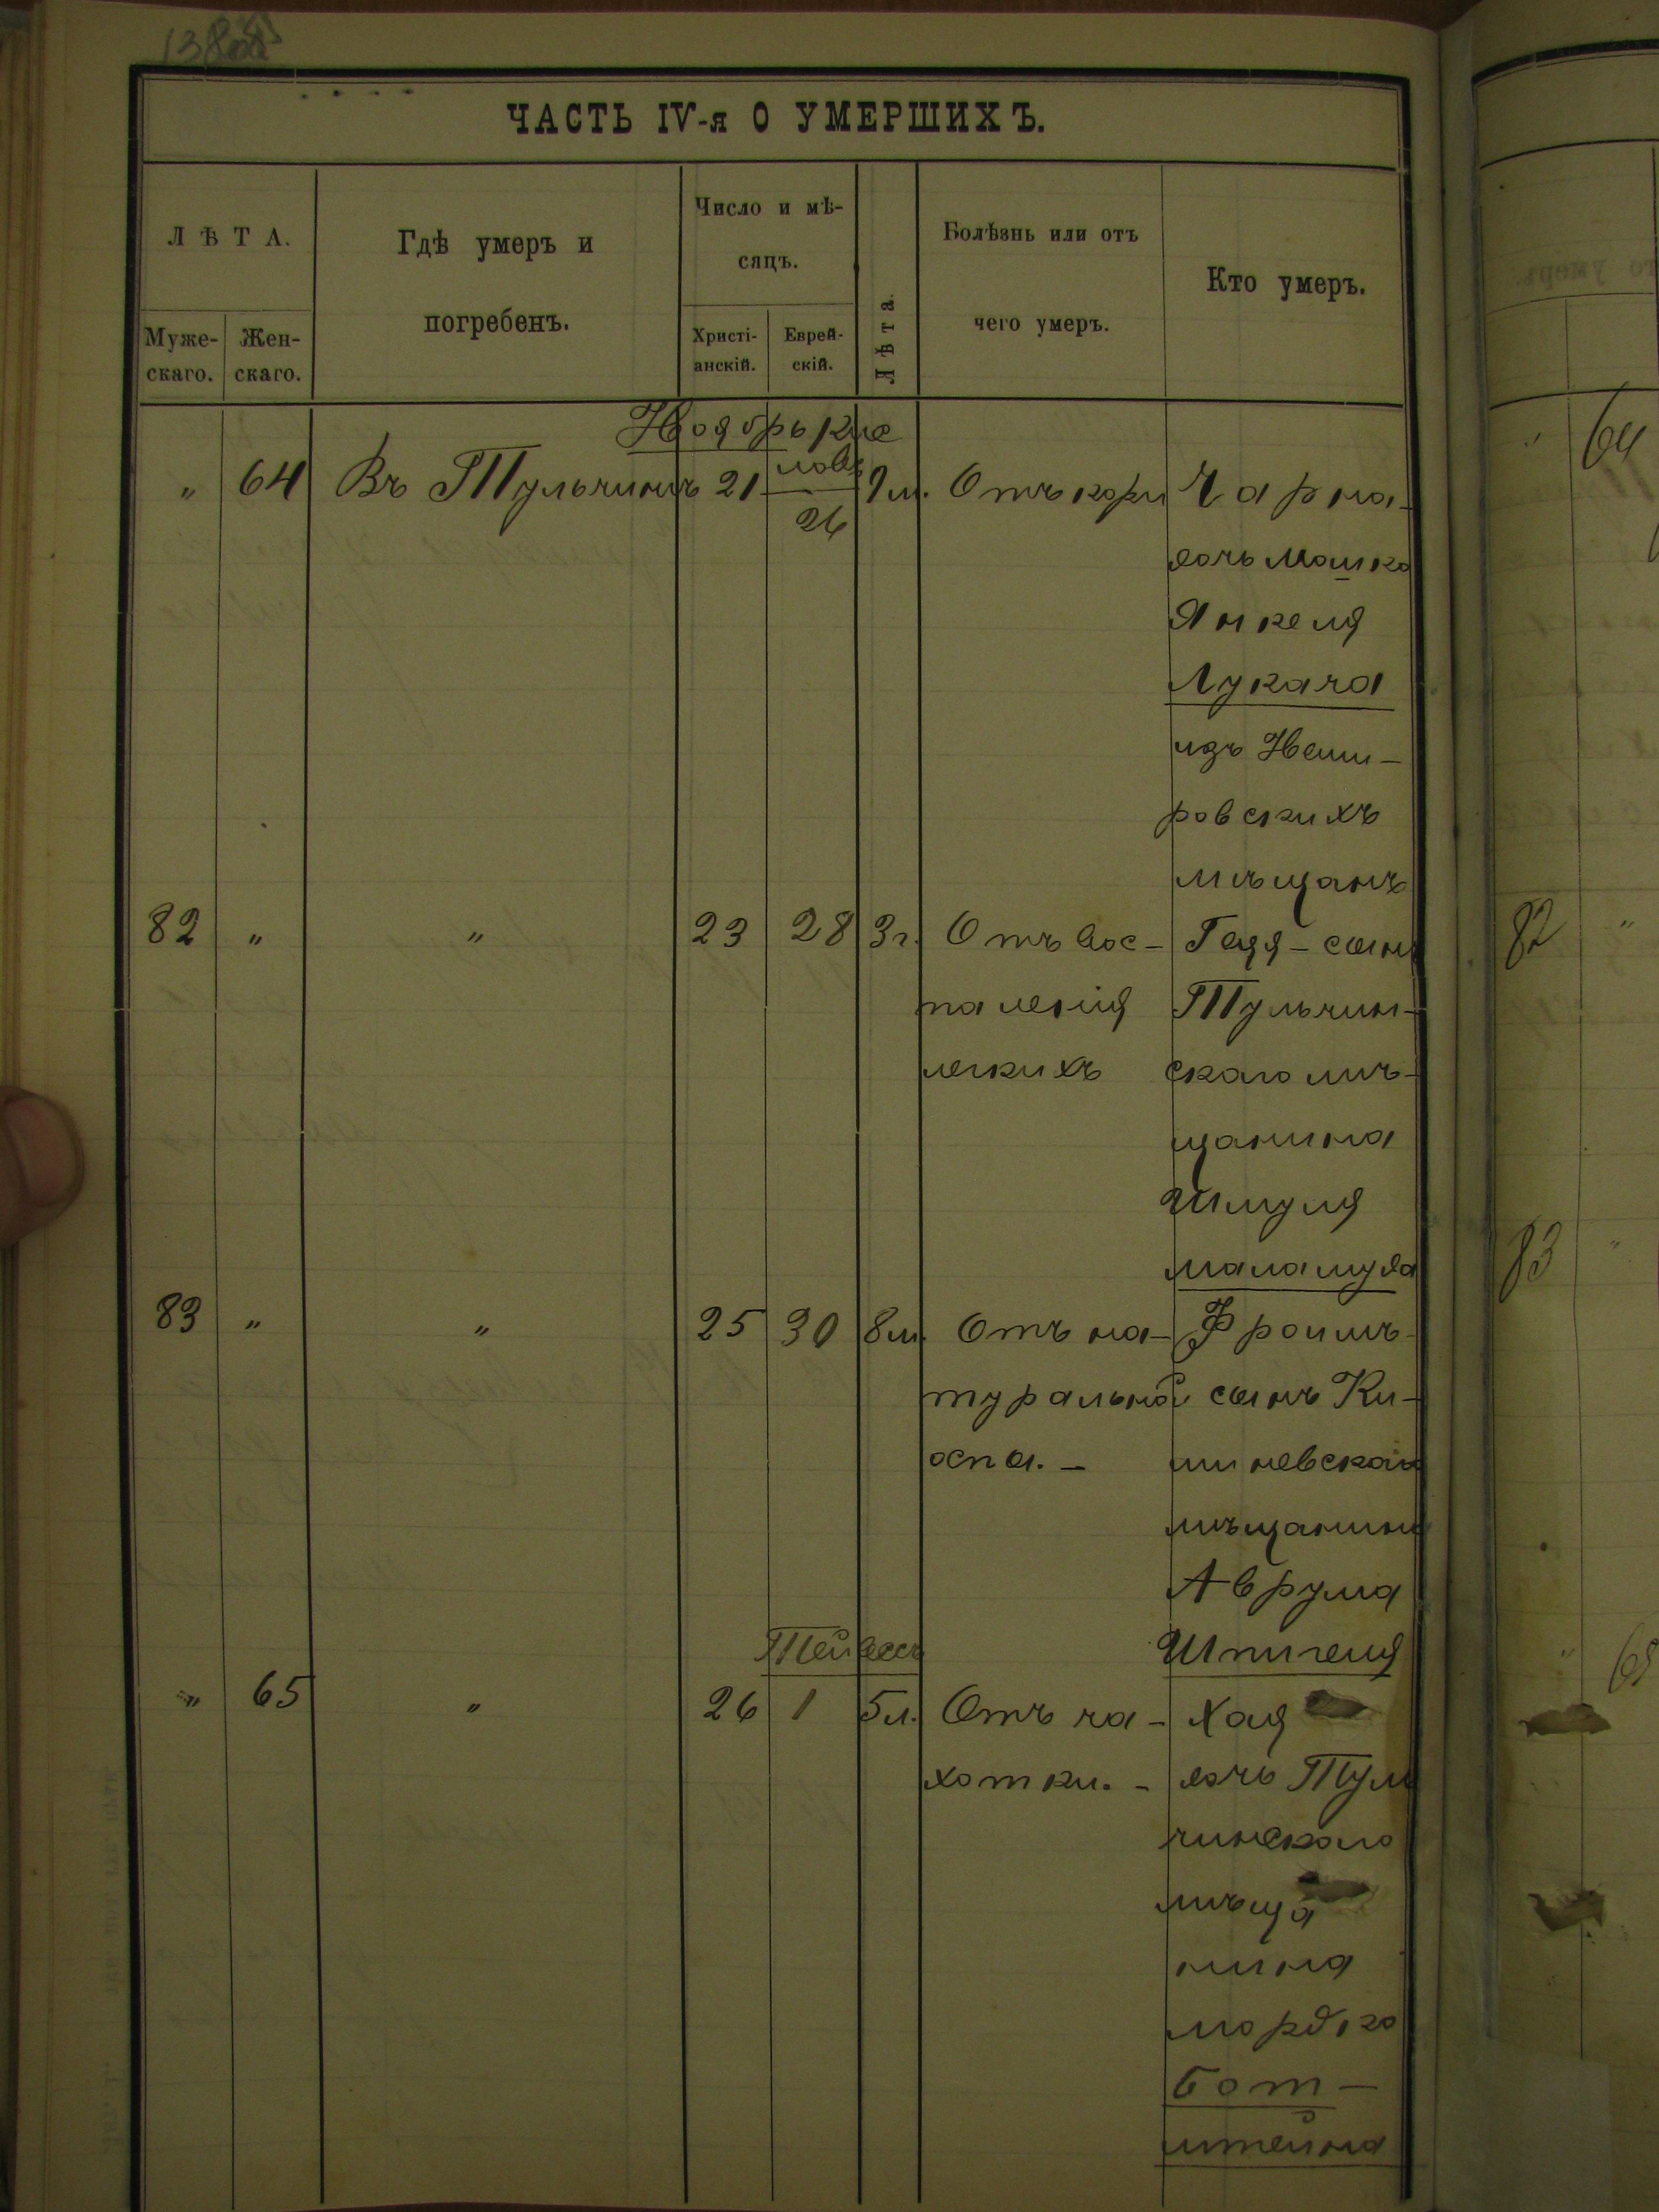 ЧАСТЬ IV-я О УМЕРШИХЪ.
ЛѢТА.
Муже-
скаго.
Жен-
скаго.
Гдѣ умеръ и
погребенъ.
Число и мѣ-
сяцъ.
Христі-
анскій.
Еврей-
скій.
Лѣта.
Болѣзнь или отъ
чего умеръ.
Кто умеръ.
Ноябрь Кис
левъ
„ 64 Въ Тульчинѣ 21 26 9 м. Отъ кори Чарна-
дочь Мошко
Янкеля
Лукача
изъ Неми-
ровскихъ
мѣщанъ
82 „ „ 23 28 3 г. Отъ вос- сынъ
паленія Тульчин-
легкихъ скаго мѣ-
щанина
Шмуля
Маламуда
83 „ „ 25 30 8 м. Отъ на- Фроимъ-
туральной сынъ Ки-
оспа. - шиневскаго
мѣщанина
Аврума
Шпигеля
Тейвесъ
„ 65 „ 26 1 5 л. Отъ ча- Хая
хотки. - дочь Туль
чинскаго
мѣща
нина
Мордко
Бот-
штейна
64
82 „
83 „
„ 65